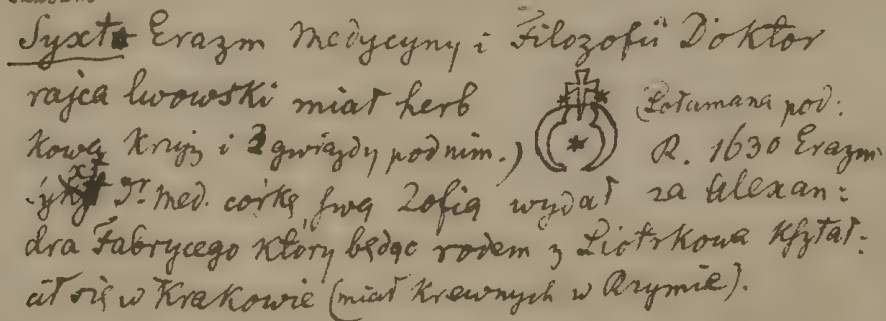 Syxt Erazm Medycyny i Filozofii Doktor
rajca lwowski miał herb (Połamana pod:
kową krzyż i 3 gwiazdy pod nim.) R. 1630 Erazm
Dr. med. córkę swą Zofią wydał za Alexan:
dra Fabrycego który będąc rodem z Piotrkowa kształ:
cił się w Krakowie (miał krewnych w Rzymie).